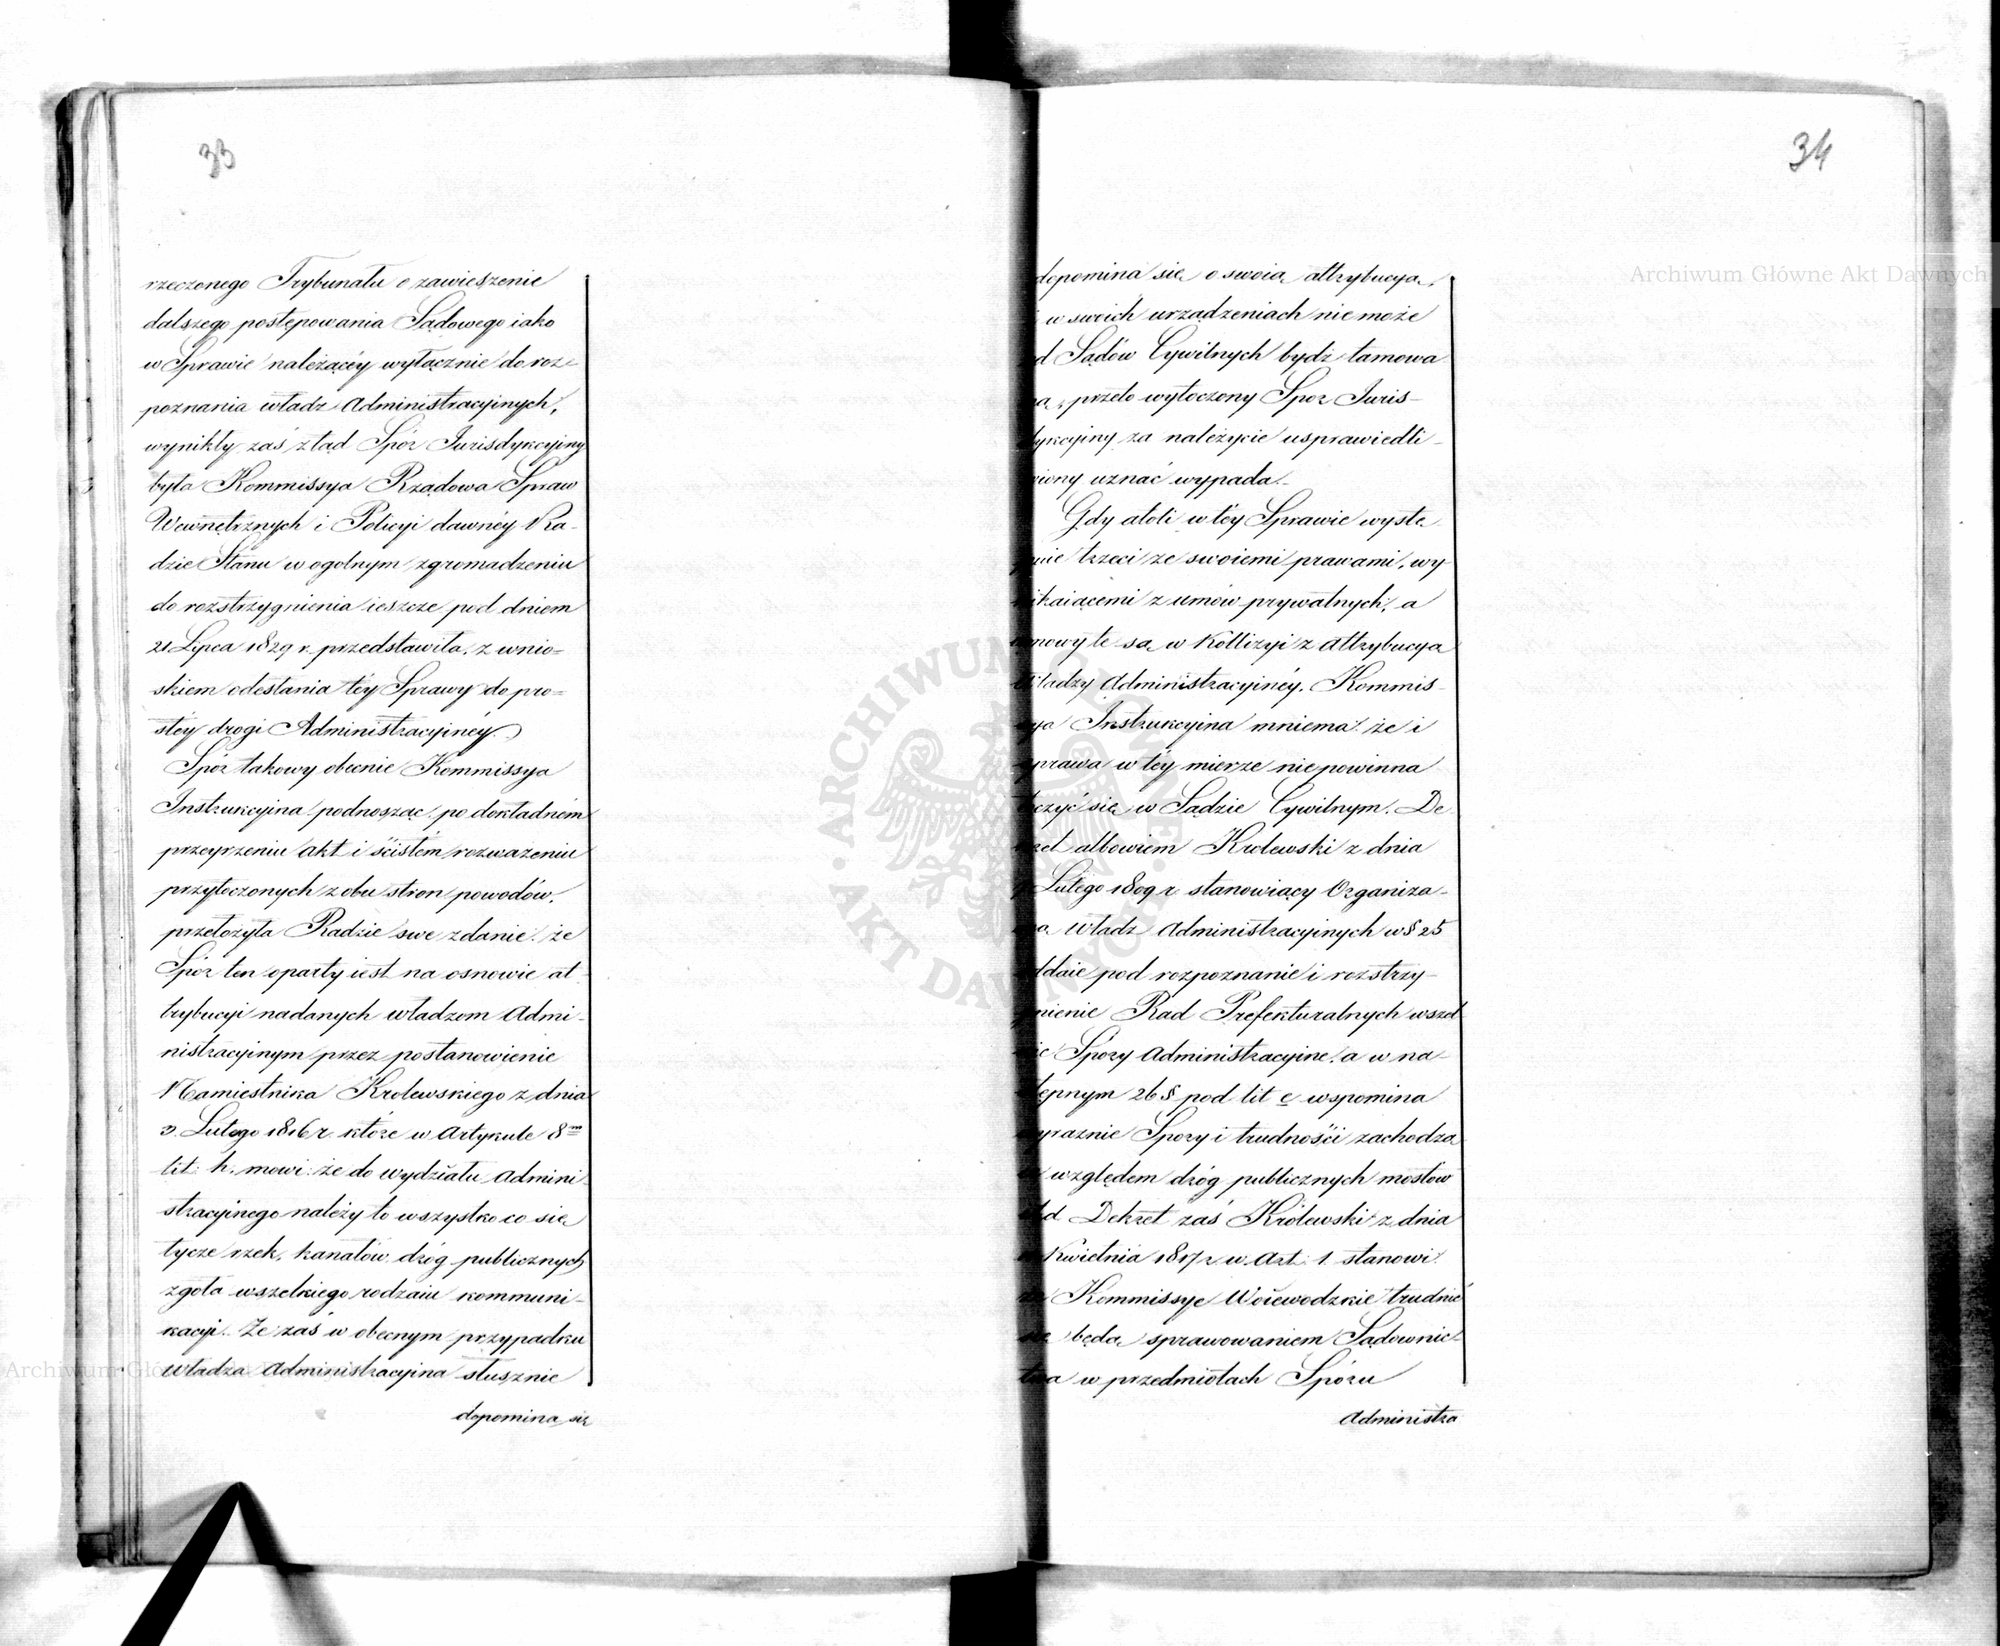 33
rzeczonego Trybunału o zawieszenie
dalszego postępowania Sądowego iako
w Sprawie należącéy wyłącznie do roz=
poznania władz Administracyinych,
wynikły zaś ztąd Spór Jurisdykcyiny
była Kommissya Rządowa Spraw
Wewnętrznych i Policyi dawnéy Ra-
dzie Stanu w ogolnym zgromadzeniu
do rozstrzygnienia ieszcze pod dniem
21 Lipca 1829 r. przedstawiła, z wnio=
skiem odesłania téy Sprawy do pro=
stéy drogi Administracyinéy.
Spór takowy obecnie Kommissya
Instrukcyina podnosząc, po dokładném
przeyrzeniu akt i ścisłém rozważeniu
przytoczonych z obu stron powodów,
przełożyła Radzie swe zdanie: że
Spór ten oparty iest na osnowie at-
trybucyi nadanych władzom Admi-
nistracyinym przez postanowienie
Namiestnika Krolewskiego z dnia
3 Lutego 1816 r. które w Artykule 8m
lit: h. mowi: że do wydziału Admini-
stracyinego należy to wszystko co się
tycze rzek, kanałów, dróg publicznych
zgoła wszelkiego rodzaiu kommuni-
kacyi. Że zaś w obecnym przypadku
władza Administracyina słusznie
dopomina się
34
dopomina się o swoią attrybucyą,
i w swoich urządzeniach nie może
od Sądów Cywilnych bydź tamowa
na, przeto wytoczony Spor Juris-
dykcyiny za należycie usprawiedli-
wiony uznać wypada.
Gdy atoli w téy Sprawie wystę
puie trzeci ze swoiemi prawami, wy
nikaiącemi z umów prywatnych, a
umowy te są w kollizyi z attrybucyą
władzy Administracyinéy, Kommis-
sya Instrukcyina mniema: że i
sprawa w téy mierze nie powinna
toczyć się w Sądzie Cywilnym. De
kret albowiem Krolewski z dnia
Lutego 1809 r. stanowiący Organiza-
cyą Władz Administracyinych w § 25
oddaie pod rozpoznanie i rozstrzy-
gnienie Rad Prefekturalnych wszel
kie Spory Administracyine, a w na-
stępnym 26 § pod lit c wspomina
wyraznie Spory i trudności zachodzą
ce względem dróg publicznych mostów
itd Dekret zaś Królewski z dnia
Kwietnia 1817 r. w Art: 1. stanowi:
że Kommissye Woiewodzkie trudnić
się będą sprawowaniem Sądownic-
twa w przedmiotach Spóru
Administra
Archiwum Główne Akt Dawnych
ARCHIWUM GŁÓWNE AKT DAWNYCH